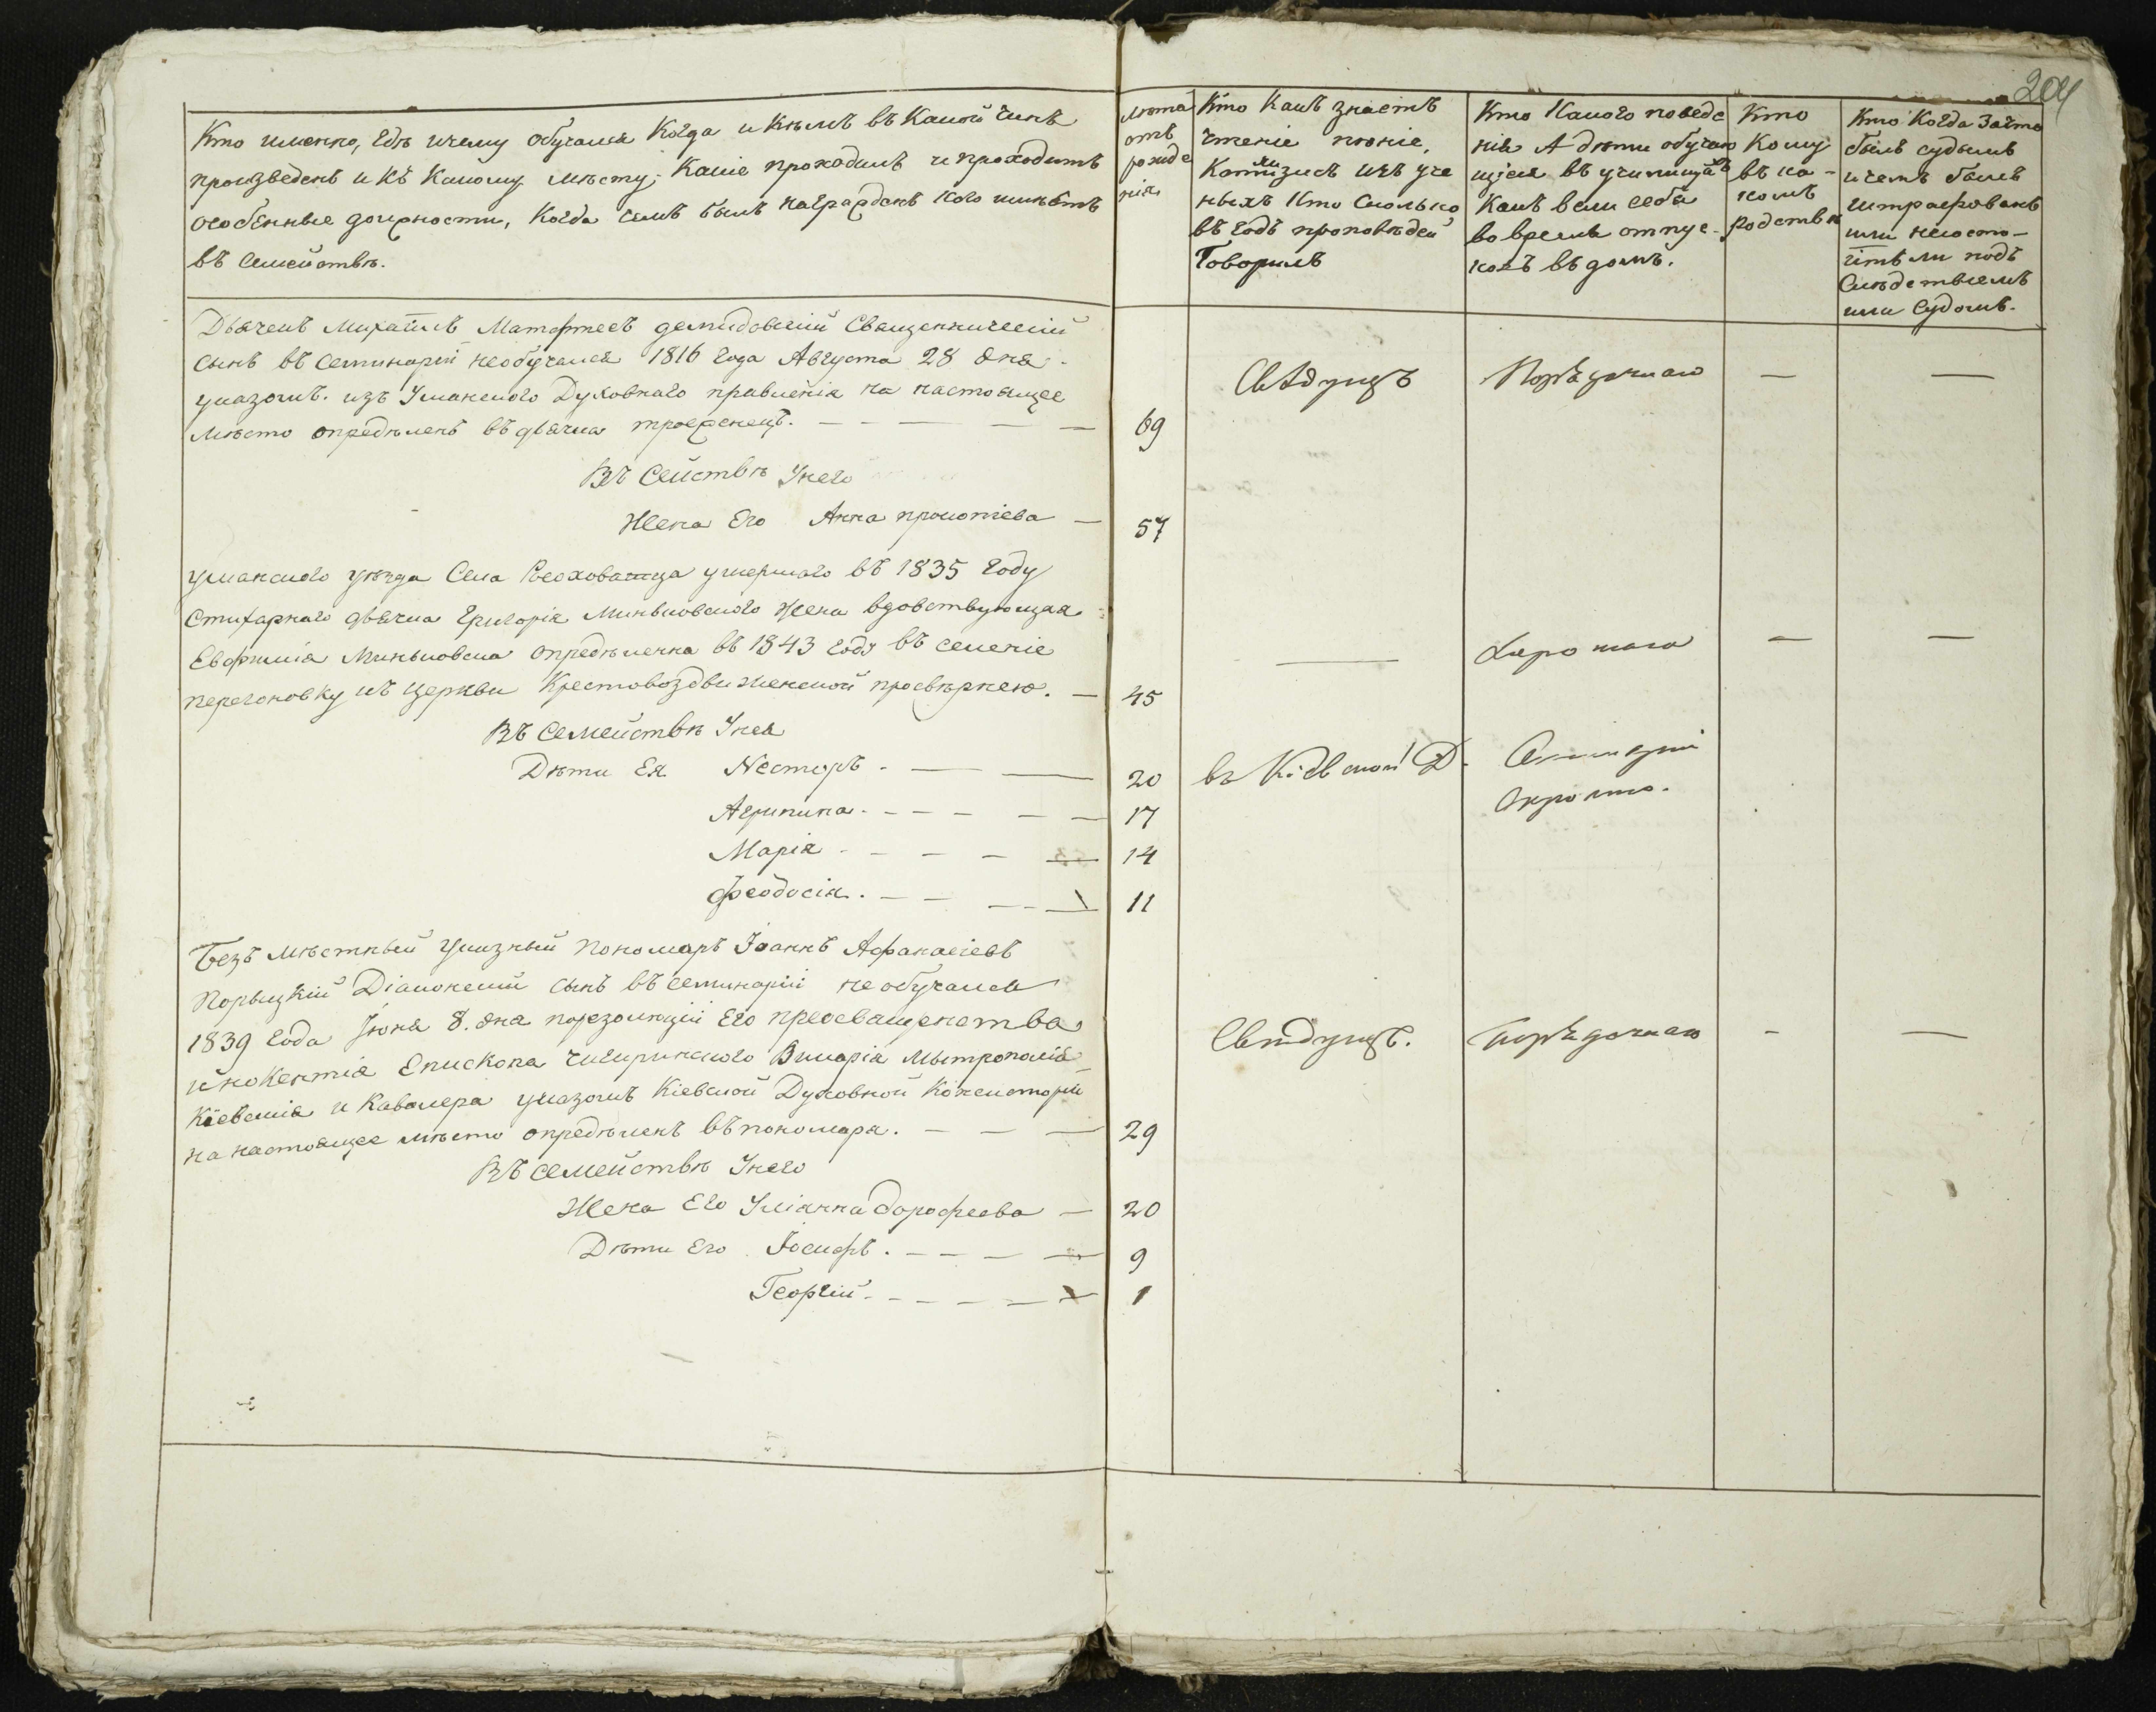 204
Кто именно, гдѣ и чему обучался когда и кѣмъ въ какой чинъ
произведенъ и къ какому мѣсту; какіе проходилъ и проходитъ
особенные должности, когда чемъ былъ награжденъ кого имѣетъ
въ семействѣ.
лѣта
отъ
рожде
нія
Кто какъ знаетъ
чтеніе пѣніе,
Катихизисъ изъ уче
ныхъ кто сколько
въ годъ проповѣдей
Говорилъ
Кто какого поведе
нія А дѣти обучаю
щіеся въ училищахъ
какъ вели себя
во время отпус-
ковъ въ домъ.
Кто
кому
въ ка-
комъ
родствѣ
Кто когда за что
былъ судымъ
и чемъ былъ
штрафованъ
или не состо-
итъ ли подъ
Слѣдствіемъ
или Судомъ.
Дьячекъ Михаилъ Матфѣевъ Демидовскій Священническій
сынъ въ семинаріи необучался 1816 года Августа 28 дня
указомъ изъ Уманского Духовнаго правленія на настоящее
мѣсто опредѣленъ въ дьячка 69
Свѣдущъ
Порядочнаго
Въ Сействѣ Унего
Жена Его Анна прокопіева 57
Уманского уѣзда Села Росоховатца умершаго въ 1835 году
Стихарнаго дьячка Григорія Миньковского жена вдовствующая
Евфимія Миньковска опредѣленна въ 1843 году въ селеніе
перегоновку къ церкви Крестовоздвиженской просвѣрнею. 45
Въ Семействѣ Унея
Дѣти Ея Несторъ 20
въ Кіевской Д.
Агрипина 17
Марія 14
Феодосія. 11
Безъ мѣстный указный пономаръ Іоаннъ Афанасіевъ
Порыцкій Діаконскій сынъ въ семинаріи не обучался
1839 года Іюня 8. дня по резолюціи Его преосвященства
инокентія Епископа Чигиринского Викарія Мытрополіи
Кіевскія и Кавалера указомъ Кіевской Духовной Консисторіи
на настоящее мѣсто опредѣленъ въ пономаря. 29
Свѣдущъ.
Порядочнаго
Въ семействѣ Унего
Жена Его Уліанна дорофеева 20
Дѣти Его Іосифъ. 9
Георгій 1